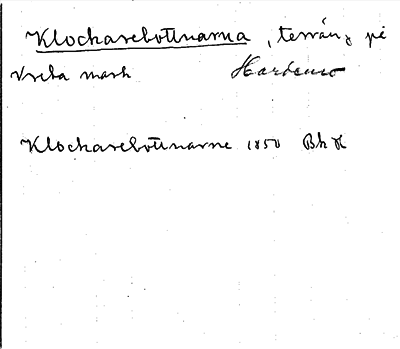 Klockarebottnarna, terräng på
Vreta mark Hardemo
Klockarebottnarne 1850 BhK